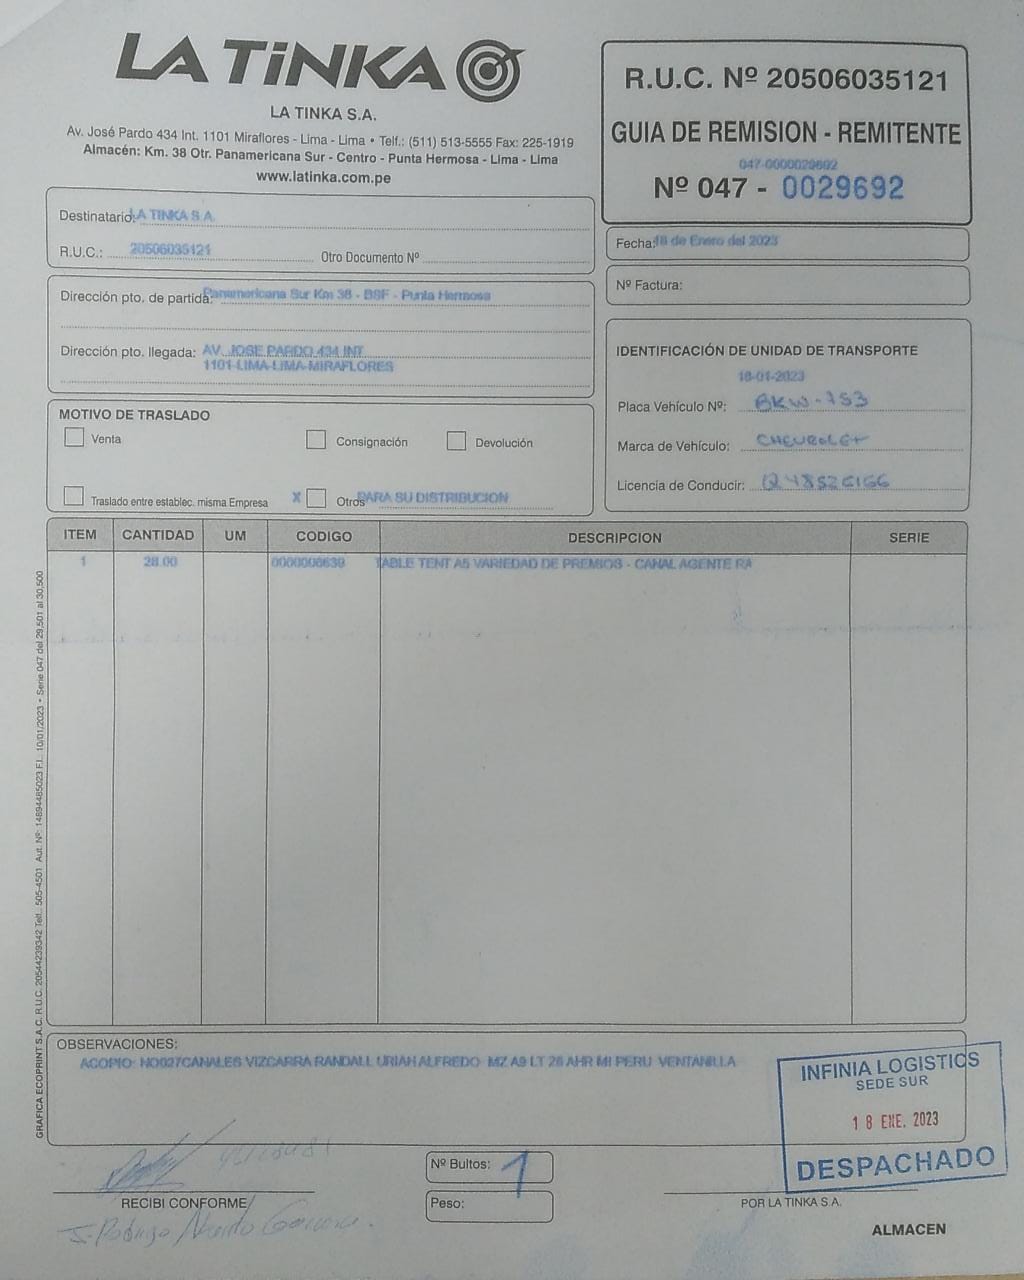 LA TiNKA
LA TINKA S.A.
Av. José Pardo 434 Int. 1101 Miraflores - Lima - Lima • Telf.: (511) 513-5555 Fax: 225-1919
Almacén: Km. 38 Otr. Panamericana Sur - Centro - Punta Hermosa - Lima - Lima
www.latinka.com.pe
R.U.C. Nº 20506035121
GUIA DE REMISION - REMITENTE
047-0000029692
Nº 047 - 0029692
Destinatario: LA TINKA S.A.
R.U.C.: 20506035121 Otro Documento Nº
Fecha: 18 de Enero del 2023
Nº Factura:
Dirección pto. de partida: Panamericana Sur Km 38 - BSF - Punta Hermosa
Dirección pto. llegada: AV. JOSE PARDO 434 INT.
1101-LIMA-LIMA-MIRAFLORES
IDENTIFICACIÓN DE UNIDAD DE TRANSPORTE
18-01-2023
Placa Vehículo Nº: BKW-753
Marca de Vehículo: CHEVROLET
Licencia de Conducir: Q48526166
MOTIVO DE TRASLADO
Venta Consignación Devolución
Traslado entre establec. misma Empresa X Otros PARA SU DISTRIBUCION
ITEM CANTIDAD UM CODIGO DESCRIPCION SERIE
1 28.00 0000006639 TABLE TENT A5 VARIEDAD DE PREMIOS - CANAL AGENTE RA
GRAFICA ECOPRINT S.A.C. R.U.C. 20544239342 Telf.: 505-4501 Aut. Nº: 14894485023 F.I.: 10/01/2023 • Serie 047 del 29,501 al 30,500
OBSERVACIONES:
ACOPIO: NO027CANALES VIZCARRA RANDALL URIAH ALFREDO MZ A9 LT 26 AHR MI PERU VENTANILLA
INFINIA LOGISTICS
SEDE SUR
18 ENE. 2023
DESPACHADO
RECIBI CONFORME
Nº Bultos: 1
Peso:
POR LA TINKA S.A.
ALMACEN